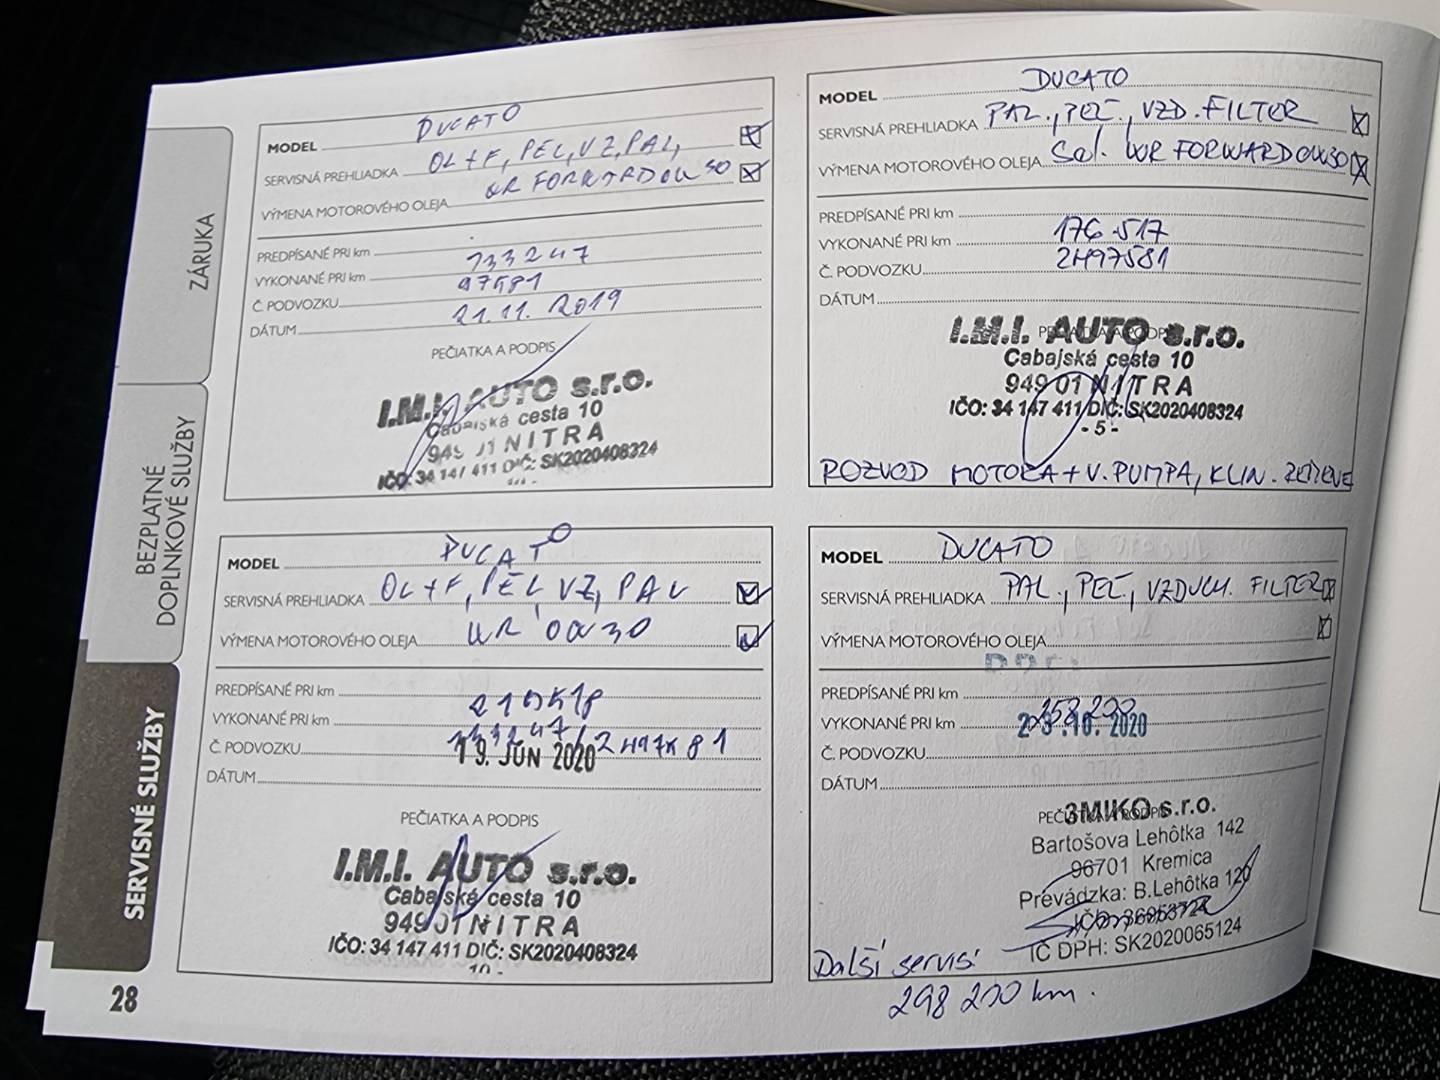 ZÁRUKA
BEZPLATNÉ
DOPLNKOVÉ SLUŽBY
SERVISNÉ SLUŽBY
28
MODEL DUCATO
SERVISNÁ PREHLIADKA OL+F, PEL, VZ, PAL,
VÝMENA MOTOROVÉHO OLEJA WR FORWARD OW30
PREDPÍSANÉ PRI km
VYKONANÉ PRI km 133247
Č. PODVOZKU
DÁTUM 21.11.2019
PEČIATKA A PODPIS
I.M.I. AUTO s.r.o.
Cabajská cesta 10
949 01 NITRA
IČO: 34 147 411 DIČ: SK2020408324
MODEL DUCATO
SERVISNÁ PREHLIADKA PAL., PEĽ., VZD. FILTER
VÝMENA MOTOROVÉHO OLEJA Sel. WR FORWARD OW30
PREDPÍSANÉ PRI km
VYKONANÉ PRI km 176.517
Č. PODVOZKU 2H97581
DÁTUM
PEČIATKA A PODPIS
I.M.I. AUTO s.r.o.
Cabajská cesta 10
949 01 NITRA
IČO: 34 147 411 DIČ: SK2020408324
- 5 -
ROZVOD MOTORA + V. PUMPA, KLIN. REMENE
MODEL DUCATO
SERVISNÁ PREHLIADKA OL+F, PEL VZ, PAL
VÝMENA MOTOROVÉHO OLEJA WR OW30
PREDPÍSANÉ PRI km
VYKONANÉ PRI km
Č. PODVOZKU
19. JÚN 2020
DÁTUM
PEČIATKA A PODPIS
I.M.I. AUTO s.r.o.
Cabajská cesta 10
949 01 NITRA
IČO: 34 147 411 DIČ: SK2020408324
- 10 -
MODEL DUCATO
SERVISNÁ PREHLIADKA PAL., PEĽ., VZDUCH. FILTER
VÝMENA MOTOROVÉHO OLEJA
PREDPÍSANÉ PRI km
VYKONANÉ PRI km 258200
.10.2020
Č. PODVOZKU
DÁTUM
PEČIATKA A PODPIS
3MIKO s.r.o.
Bartošova Lehôtka 142
96701 Kremica
Prevádzka: B.Lehôtka 120
IČ DPH: SK2020065124
Ďalší servis:
298 200 km.